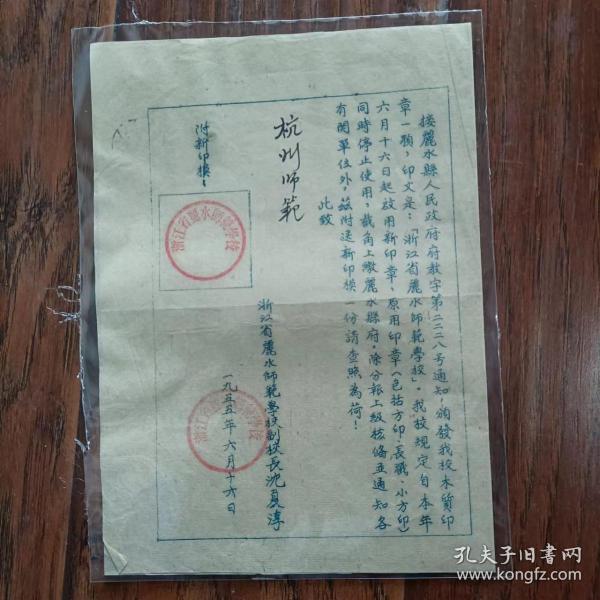 接麗水縣人民政府府教字第二二二八号通知，頒發我校木質印
章一顆，印文是：「浙江省麗水師範學校」。我校規定自本年
六月十六日起啟用新印章，原用印章(包括方印、長戳、小方印)
同時停止使用，截角上繳麗水縣府。除分報上級核备並通知各
有関單位外，茲附送新印模一份請查照為荷！
此致
杭州師範
附新印模：
浙江省麗水師範學校
浙江省麗水師範學校副校長沈夏淳
一九五五年六月十六日
浙江省麗水師範學校
孔夫子旧書网
www.kongfz.com